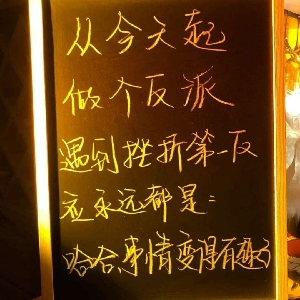 从今天起
做个反派
遇到挫折第一反
应永远都是：
哈哈,事情变得有趣了